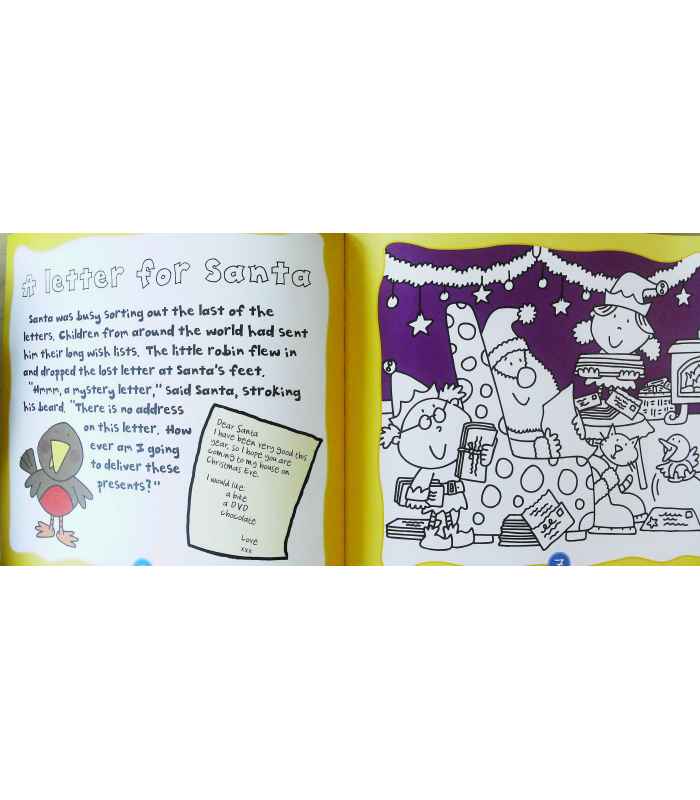 A letter for Santa
Santa was busy sorting out the last of the
letters. Children from around the world had sent
him their long wish lists. The little robin flew in
and dropped the lost letter at Santa's feet.
"Hmmm, a mystery letter," said Santa, stroking
his beard. "There is no address
on this letter. How
ever am I going
to deliver these
presents?"
Dear Santa
I have been very good this
year, so I hope you are
coming to my house on
Christmas Eve.
I would like:
a bike
a DVD
chocolate
Love
xxx
7